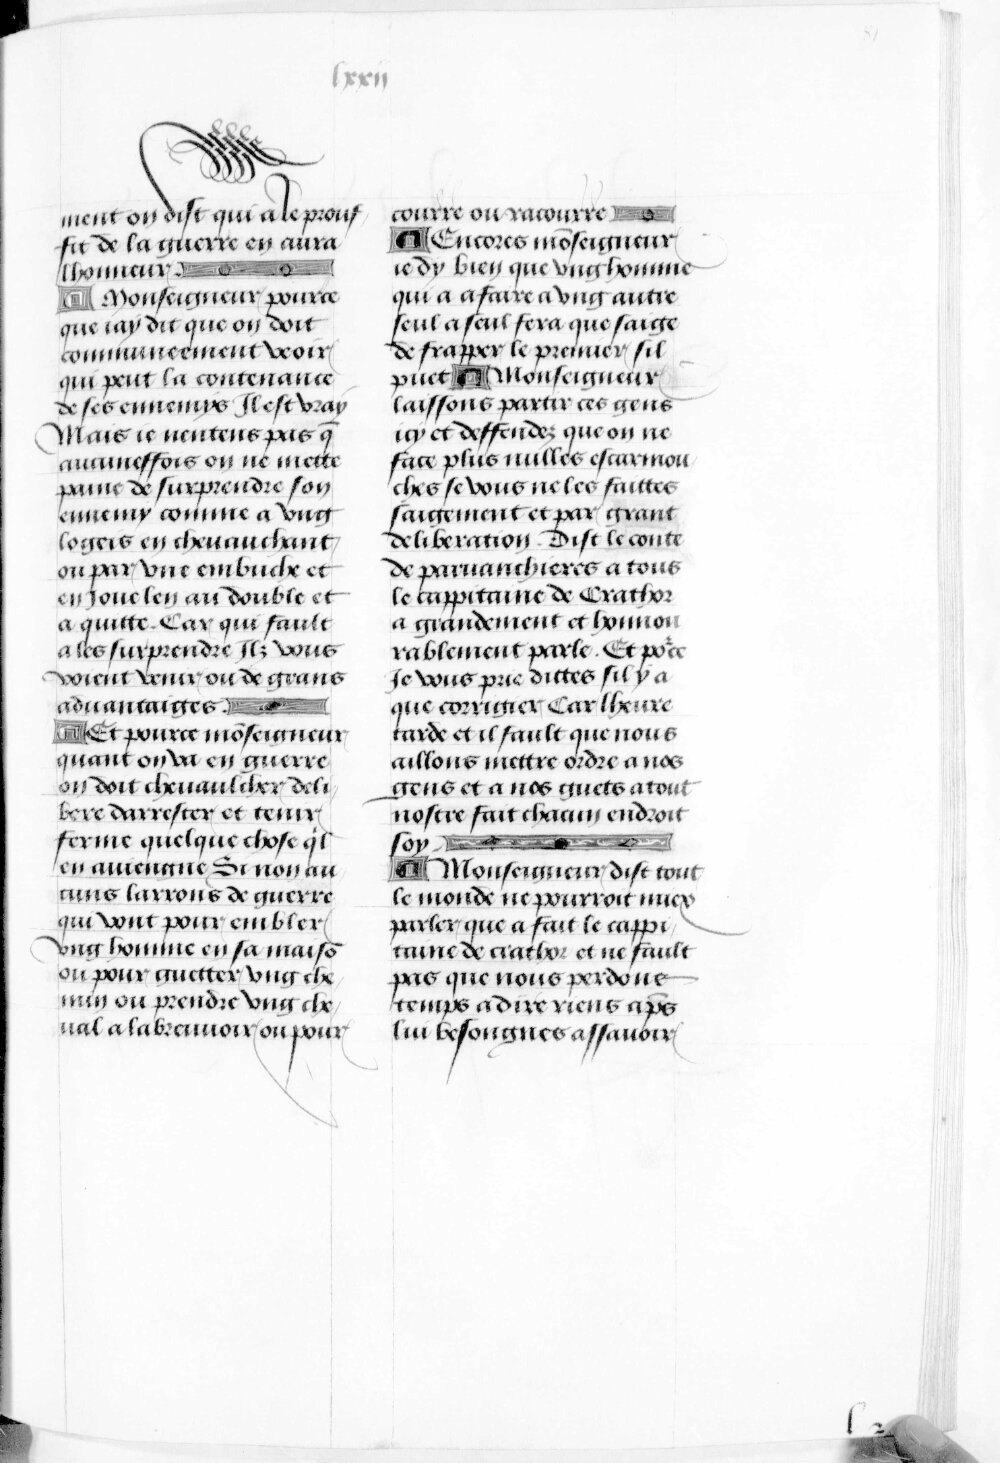 81
lxxii
ment on dist qui a le prouf
fit de la guerre en aura
lhonneur.
Monseigneur pource
que iay dit que on doit
communeement veoir
qui peut la contenance
de ses ennemys Il est vray
Mais ie nentens pas q̃
aucuneffois on ne mette
paine de surprendre son
ennemy comme a vng
logeis en cheuauchant
ou par vne embuche et
en Joue len au double et
a quitte. Car qui fault
a les surprendre Ilz vous
voient venir ou de grans
aduantaiges.
Et pource mõseigneur
quant on va en guerre
on doit cheuaulcher deli
bere darrester et tenir
ferme quelque chose q̃l
en auiengne Si non au
cuns larrons de guerre
qui vont pour embler
vng homme en sa maisõ
ou pour guetter vng che
min ou prendre vng che
ual a labreuuoir ou pour
courre ou racourre
Encores mõseigneur
ie dy bien que vng homme
qui a a faire a vng autre
seul a seul fera que saige
de frapper le premier sil
puet Monseigneur
laissons partir ces gens
icy et deffendez que on ne
face plus nulles escarmou
ches se vous ne les faittes
saigement et par grant
deliberation. Dist le conte
de paruanchieres a tous
le cappitaine de Crathor
a grandement et honnou
rablement parle. Et por̃ce
Je vous prie dittes sil y a
que corrigier Car lheure
tarde et il fault que nous
aillons mettre ordre a nos
gens et a nos guets a tout
nostre fait chacun endroit
soy
Monseigneur dist tout
le monde ne pourroit miex
parler que a fait le cappi
taine de crathor et ne fault
pas que nous perdons
temps a dire riens ap̃s
lui besongnes assauoir
l 2